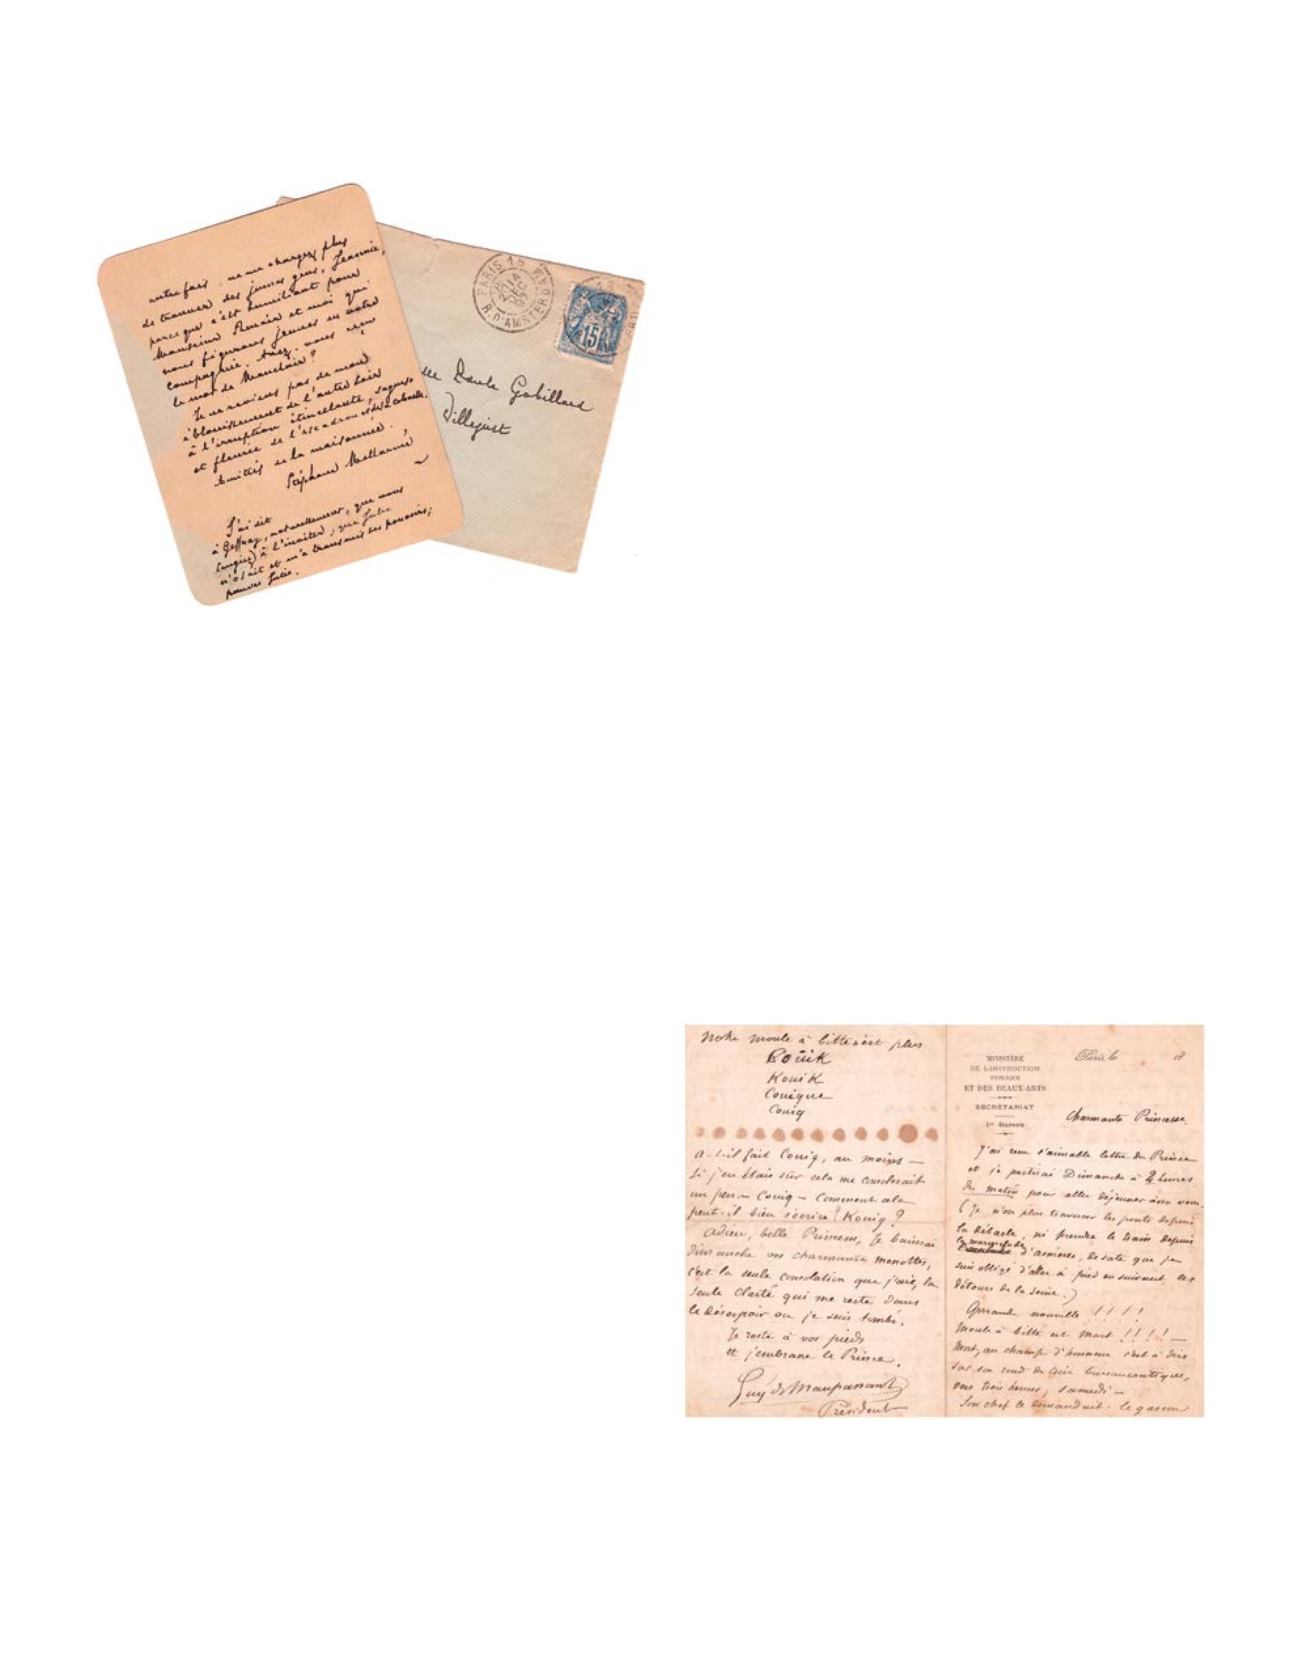 autre fois, ne me chargez plus
de trouver des jeunes gens, Jeannie,
parce que c'est humiliant pour
Monsieur Renoir et moi qui
nous figurons jeunes en votre
compagnie. Avez-vous
le mot de Mauclair ?
Je ne reviens pas de mon
éblouissement de l'autre soir
à l'irruption étincelante,
et fleurie de l'escadron
Amitiés de la maisonnée.
Stéphane Mallarmé
J'ai dit
à Geffroy, naturellement, que vous
songiez à l'inviter, que Julie
n'osait et m'a transmis ses pouvoirs;
pauvre Julie.
PARIS 18
14
DEC
R. D'AMSTERDAM
15
Paule Gobillard
Villejust
Notre moule à bitte n'est plus
Couïk
KouiK
Couique
Couiq
A-t-il fait Couiq, au moins —
Si j'en étais sûr cela me consolerait
un peu — Couiq — Comment cela
peut-il bien s'écrire ? Kouiq ?
Adieu, belle Princesse, je baiserai
dimanche vos charmantes menottes,
c'est la seule consolation que j'aie, la
seule clarté qui me reste dans
le désespoir où je suis tombé.
Je reste à vos pieds
et j'embrasse le Prince.
Guy de Maupassant
Président
MINISTÈRE
DE L'INSTRUCTION
PUBLIQUE
ET DES BEAUX-ARTS
SECRÉTARIAT
1er Bureau
Paris le 18
Charmante Princesse,
J'ai reçu l'aimable lettre du Prince
et je partirai Dimanche à 2 heures
du matin pour aller déjeuner avec vous.
(Je n'ose plus traverser les ponts depuis
la débâcle, ni prendre le train depuis
d'asnières, de sorte que je
suis obligé d'aller à pied en suivant les
détours de la Seine.)
Grrande nouvelle !!!!
Moule à bitte est mort !!!! —
Mort, au champ d'honneur c'est à dire
sur son rond de cuir bureaucratique,
vers trois heures, samedi —
Son chef le demandait. le garcon